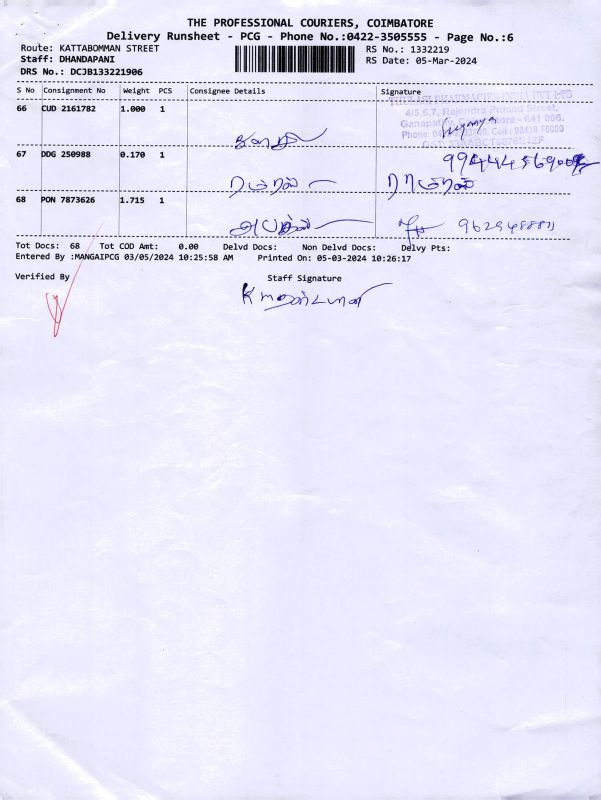 THE PROFESSIONAL COURIERS, COIMBATORE
Delivery Runsheet - PCG - Phone No.:0422-3505555 - Page No.:6
Route: KATTABOMMAN STREET RS No.: 1332219
Staff: DHANDAPANI RS Date: 05-Mar-2024
DRS No.: DCJB133221906
S No Consignment No Weight PCS Consignee Details Signature
66 CUD 2161782 1.000 1
4/5,6,7, Rajendra Prasad Street,
67 DDG 250988 0.170 1
68 PON 7873626 1.715 1
Tot Docs: 68 Tot COD Amt: 0.00 Delvd Docs: Non Delvd Docs: Delvy Pts:
Entered By :MANGAIPCG 03/05/2024 10:25:58 AM Printed On: 05-03-2024 10:26:17
Verified By Staff Signature